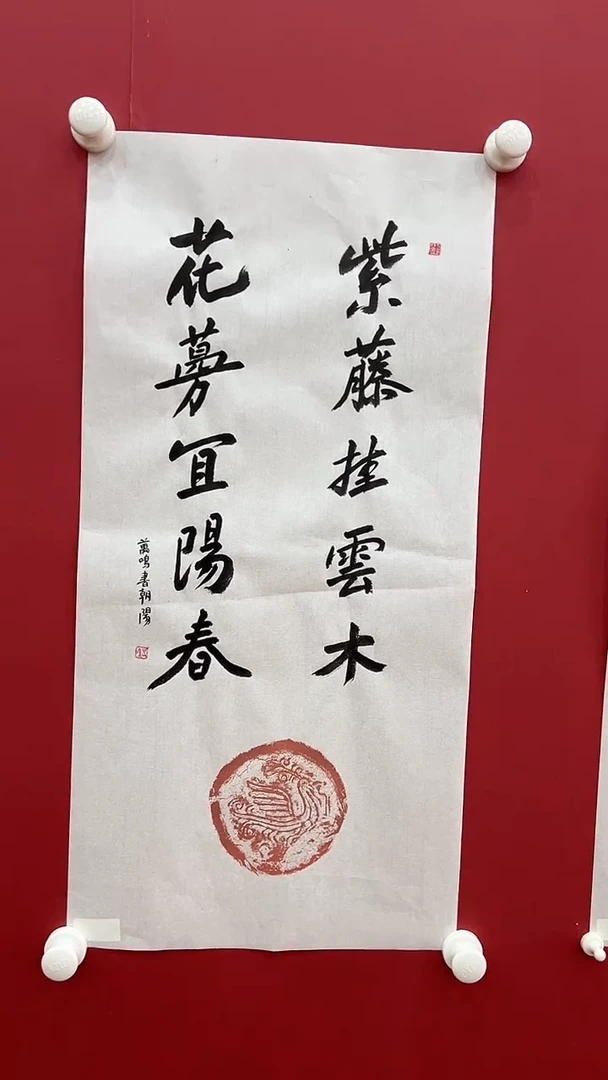 紫藤挂雲木
花蔓宜陽春
萬鳴書朝陽